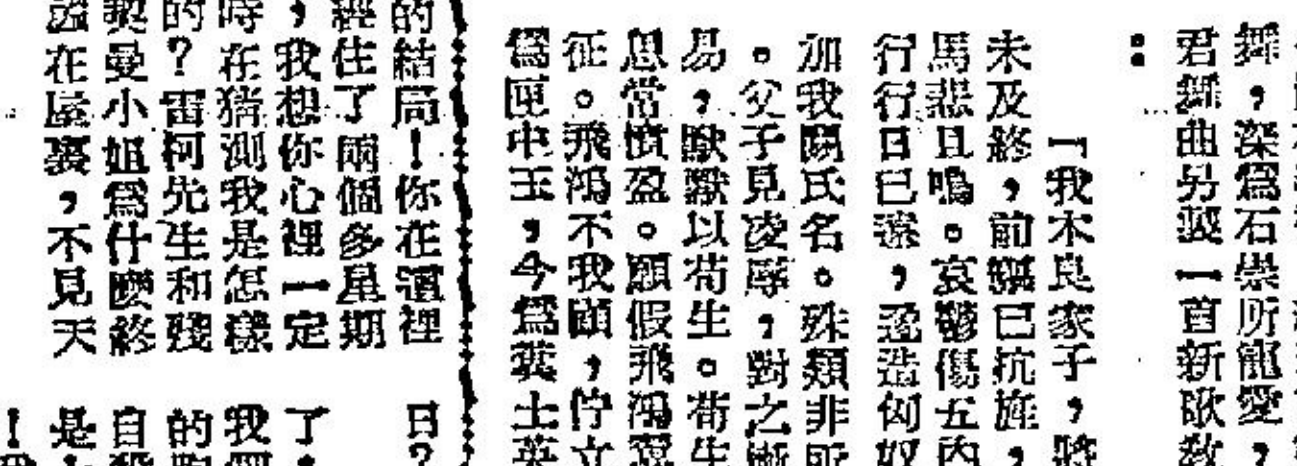 舞,深爲石崇所寵愛,
君舞曲另製一首新歌教
:
「我木良家子,將
未及終,前驅已抗旌,
馬悲且鳴。哀鬱傷五內
行行日已遠,遂造匈奴
加我閼氏名。殊類非所
。父子見凌辱,對之慚
易,默默以苟生。苟生
思常憤盈。願假飛鴻翼
征。飛鴻不我顧,佇立
爲匣中玉,今爲糞土英
的結局!你在這裡
經住了兩個多星期
,我想你心裡一定
時在猜測我是怎樣
的?雷柯先生和殘
契曼小姐爲什麼終
在屋裏,不見天
日?
了,
我
的
自殺
是
!